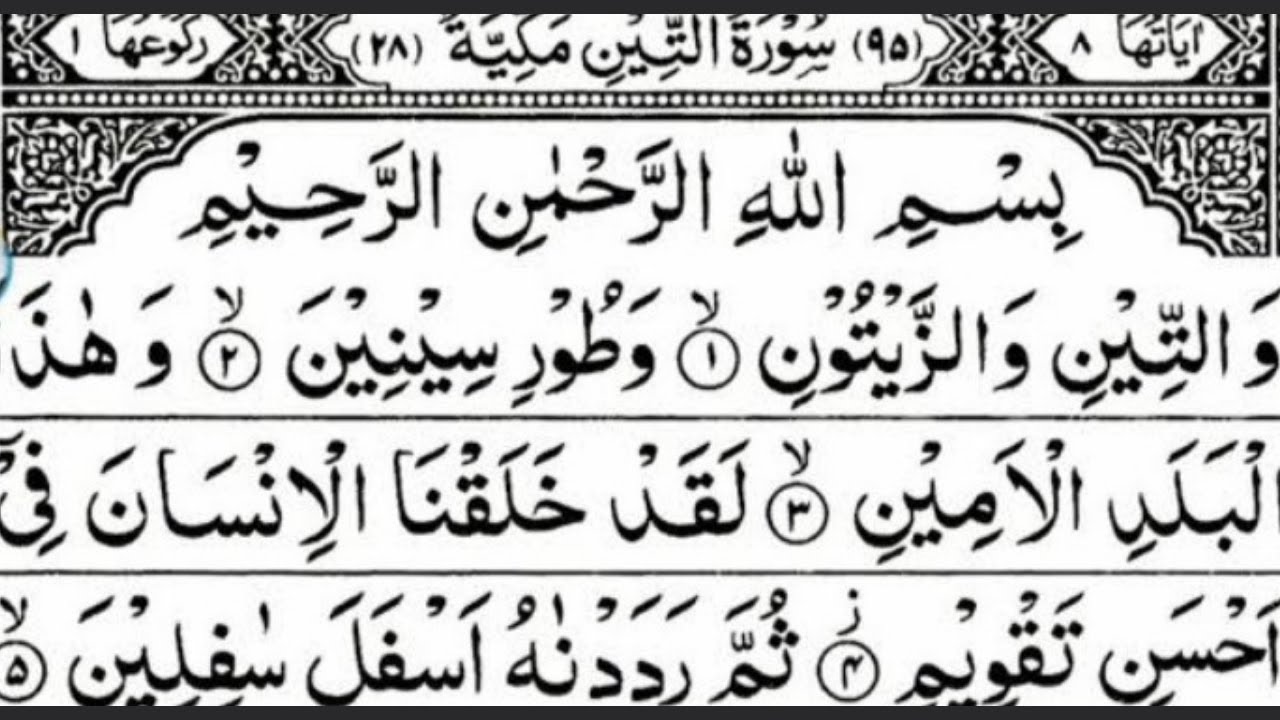 اٰیَاتُهَا ٨ (٩٥) سُوْرَةُ التِّيْنِ مَكِّيَّةٌ (٢٨) رُكُوْعُهَا ١
بِسْمِ اللّٰهِ الرَّحْمٰنِ الرَّحِيْمِ
وَالتِّيْنِ وَالزَّيْتُوْنِ ۙ﴿١﴾ وَطُوْرِ سِيْنِيْنَ ۙ﴿٢﴾ وَ هٰذَا
الْبَلَدِ الْاَمِيْنِ ۙ﴿٣﴾ لَقَدْ خَلَقْنَا الْاِنْسَانَ فِيْٓ
اَحْسَنِ تَقْوِيْمٍ ز﴿۴﴾ ثُمَّ رَدَدْنٰهُ اَسْفَلَ سٰفِلِيْنَ ۙ﴿۵﴾